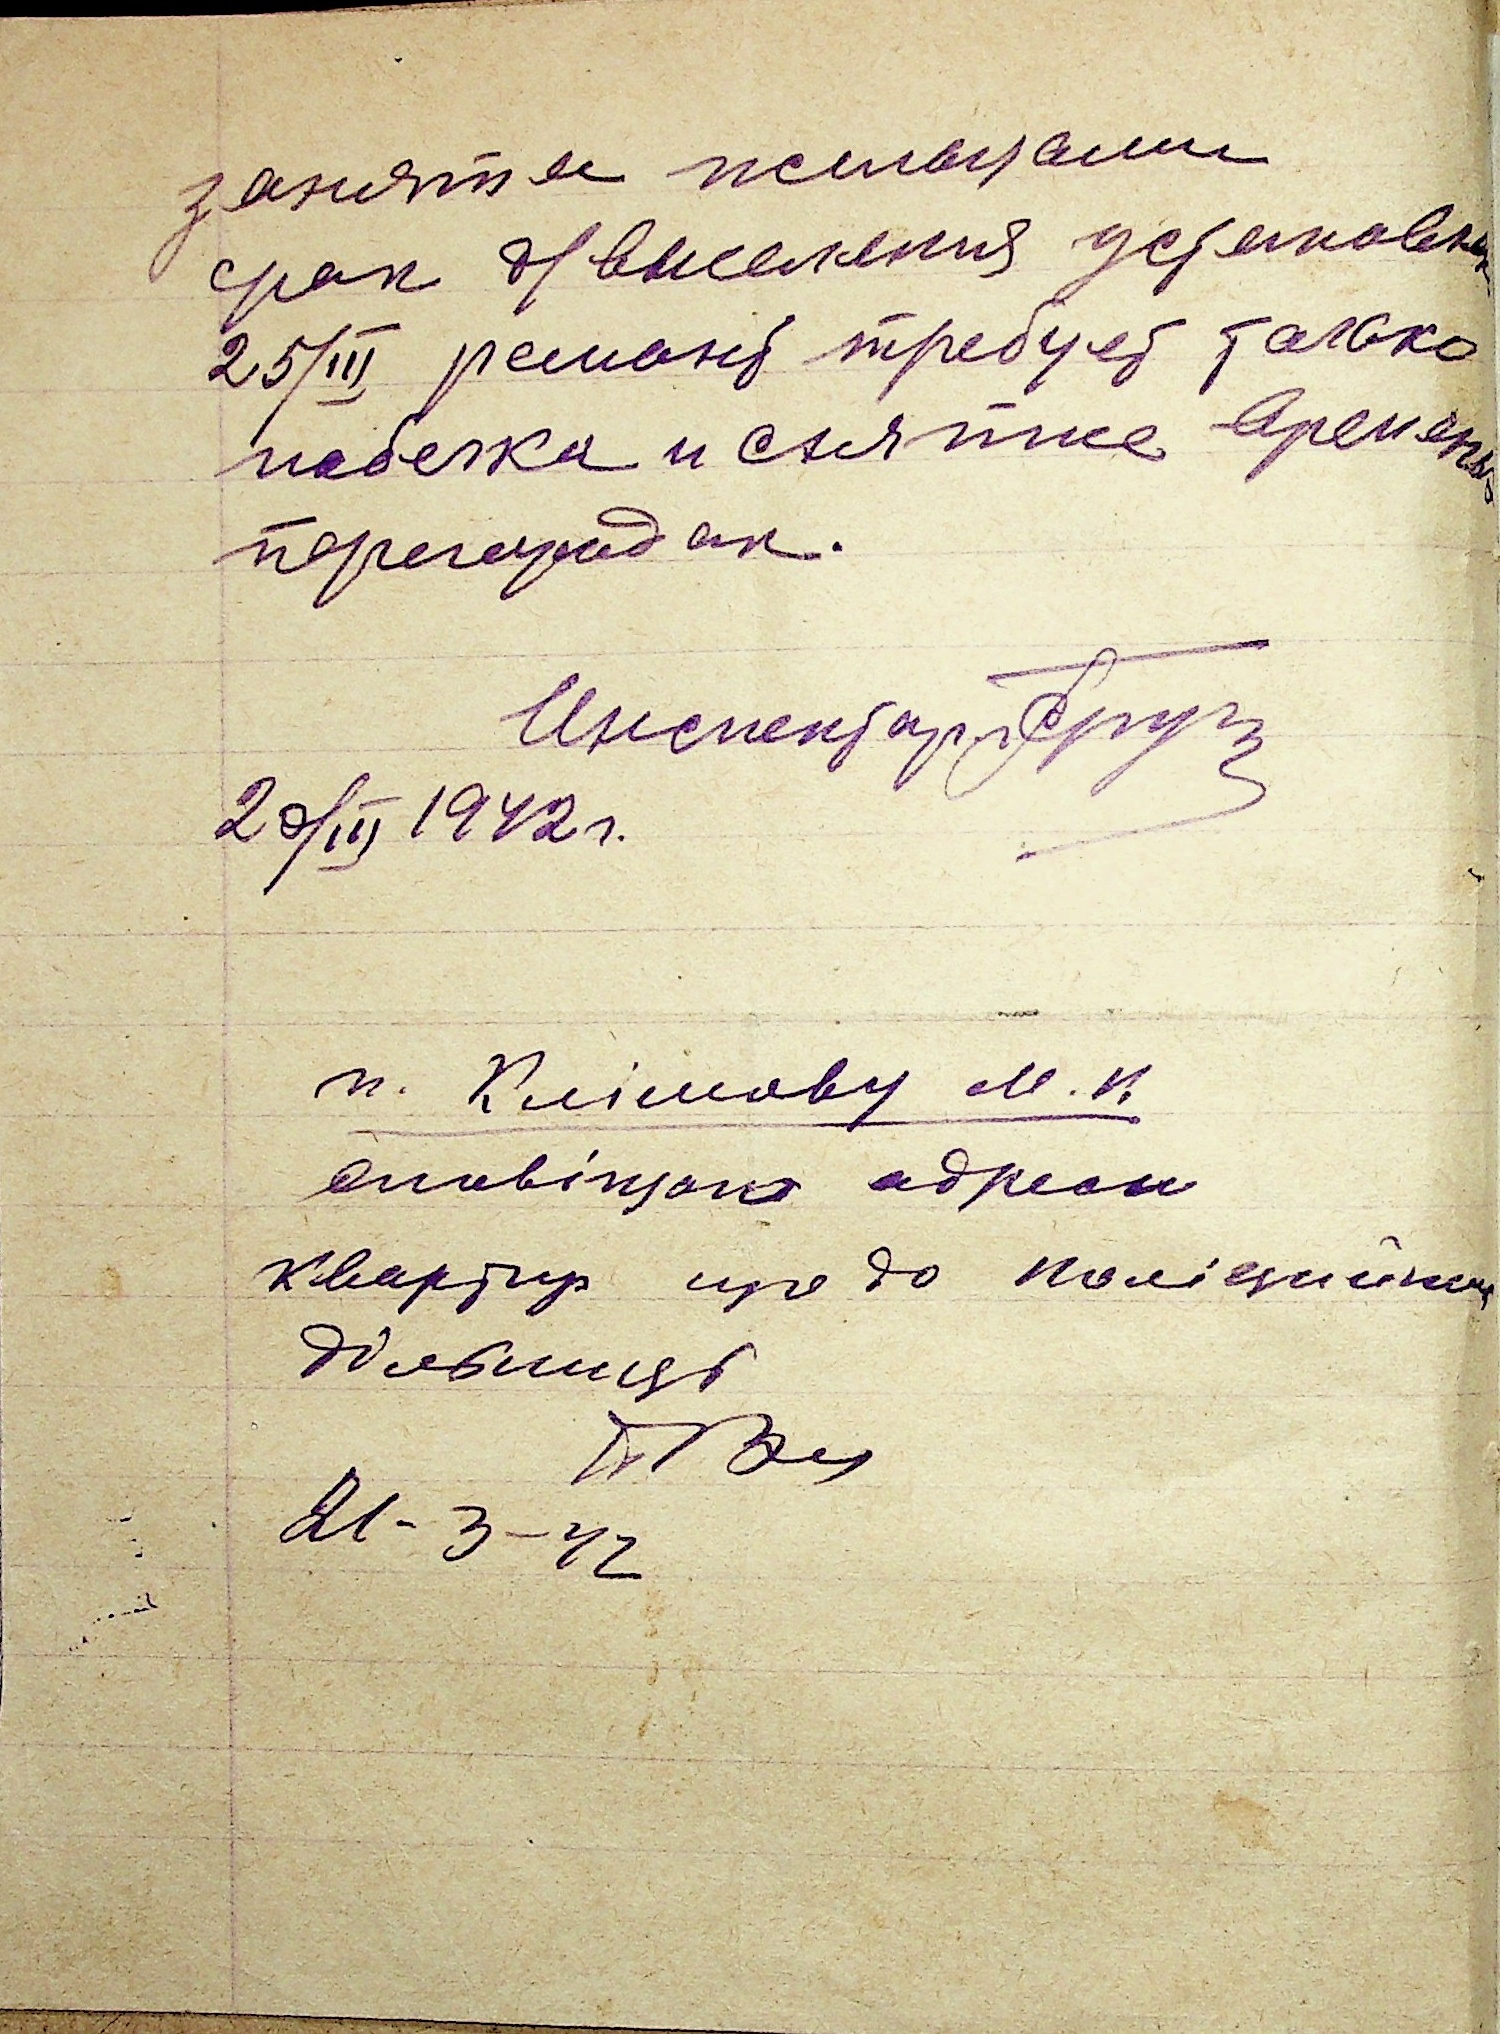 занятые жильцами
срок выселения установлен
25/III ремонт требует только
побелка и снятие времены
перегородок.
Инспектор
20/III 1942 г.
п. Клімову М. К.
сповіщаю адреси
квартир що до поліційни
дільниці
21-3-42